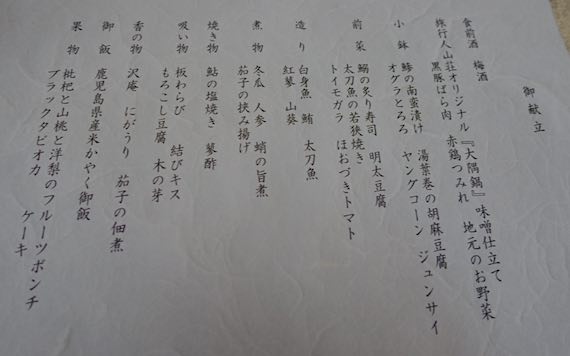 御献立
食前酒 梅酒
旅行人山荘オリジナル『大隅鍋』味噌仕立て
黒豚ばら肉 赤鶏つみれ 地元のお野菜
小鉢 鯵の南蛮漬け 湯葉巻の胡麻豆腐
オクラとろろ ヤングコーン ジュンサイ
前菜 鰯の炙り寿司 明太豆腐
太刀魚の若狭焼き
トイモガラ ほおづきトマト
造り 白身魚 鮪 太刀魚
紅蓼 山葵
煮物 冬瓜 人参 蛸の旨煮
茄子の挟み揚げ
焼き物 鮎の塩焼き 蓼酢
吸い物 板わらび 結びキス
もろこし豆腐 木の芽
香の物 沢庵 にがうり 茄子の佃煮
御飯 鹿児島県産米かやく御飯
果物 枇杷と山桃と洋梨のフルーツポンチ
ブラックタピオカ ケーキ